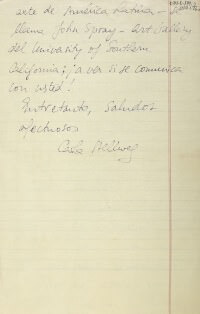 arte de América Latina -
llama John Spray - Art Gallery
del University of Southern
California; ¡a ver si se comunica
con usted!
Entretanto, saludos
afectuosos
Carla Stellweg